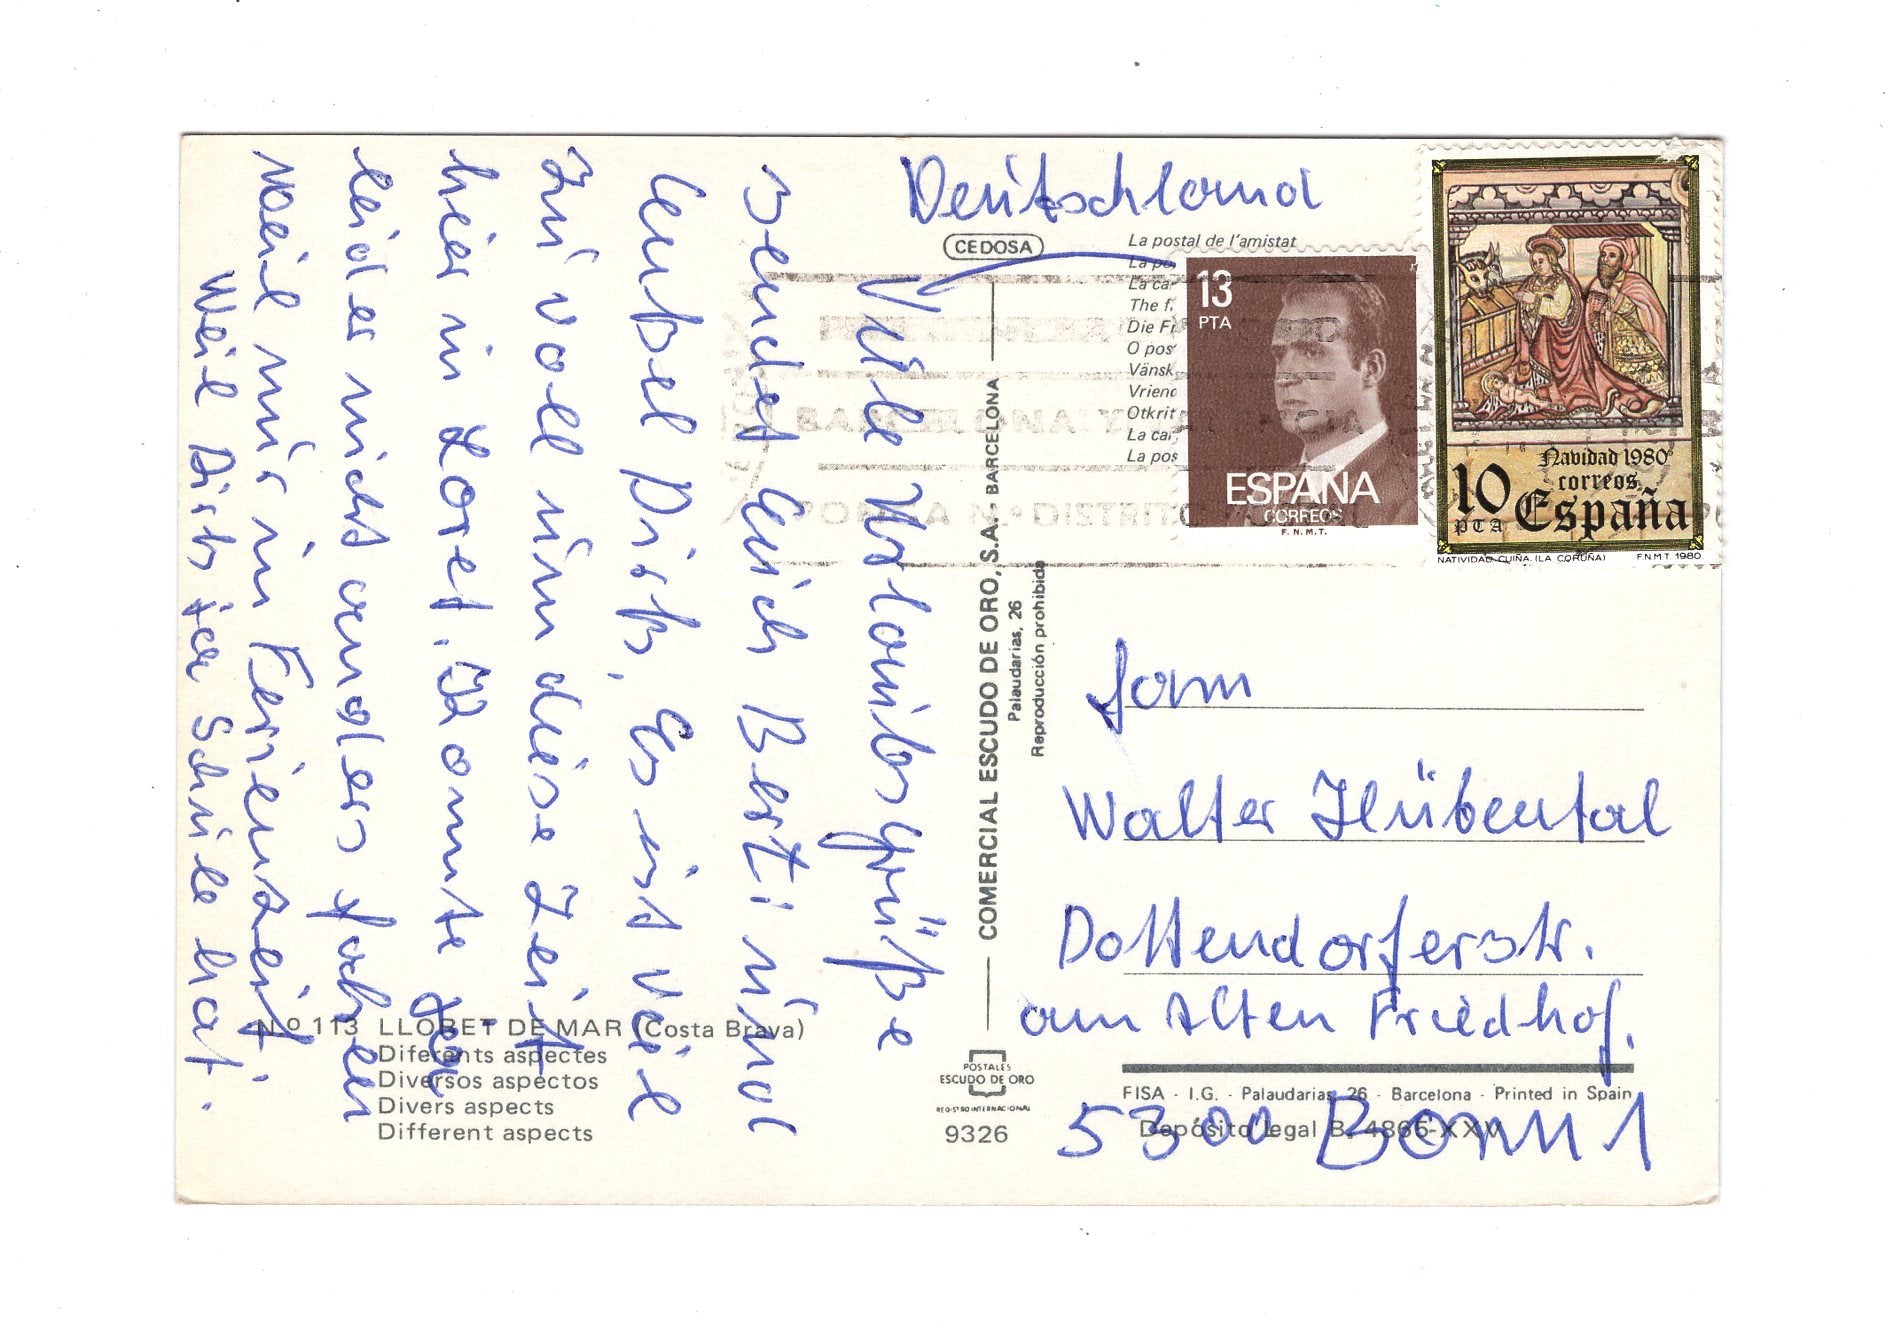 Viele Urlaubsgrüße
sendet Euch Berti und
Ist voll um diese Zeit
hier in Loret. Konnte
leider nicht anders fahren
weil nur in Ferienzeit.
Weil Dirk ja Schule hat.
Deutschland
CEDOSA
La postal de l'amistat
La po
La ca
The f
Die Fr
O pos
Vänsk
Vrienc
Otkrit
La car
La pos
13
PTA
ESPAÑA
CORREOS
F.N.M.T.
Navidad 1980
correos
10
PTA
España
NATIVIDAD CUIÑA. (LA CORUÑA) F.N.M.T. 1980
COMERCIAL ESCUDO DE ORO, S.A. - BARCELONA
Palaudarias, 26
Reproducción prohibida
Fam
Walter Hübental
Dottendorferstr.
am Alten Friedhof.
5300 Bonn 1
Nº 113 LLORET DE MAR (Costa Brava)
Diferents aspectes
Diversos aspectos
Divers aspects
Different aspects
POSTALES
ESCUDO DE ORO
REGISTRO INTERNACIONAL
9326
FISA - I.G. - Palaudarias, 26 - Barcelona - Printed in Spain
Depósito Legal B. 4866-XXV